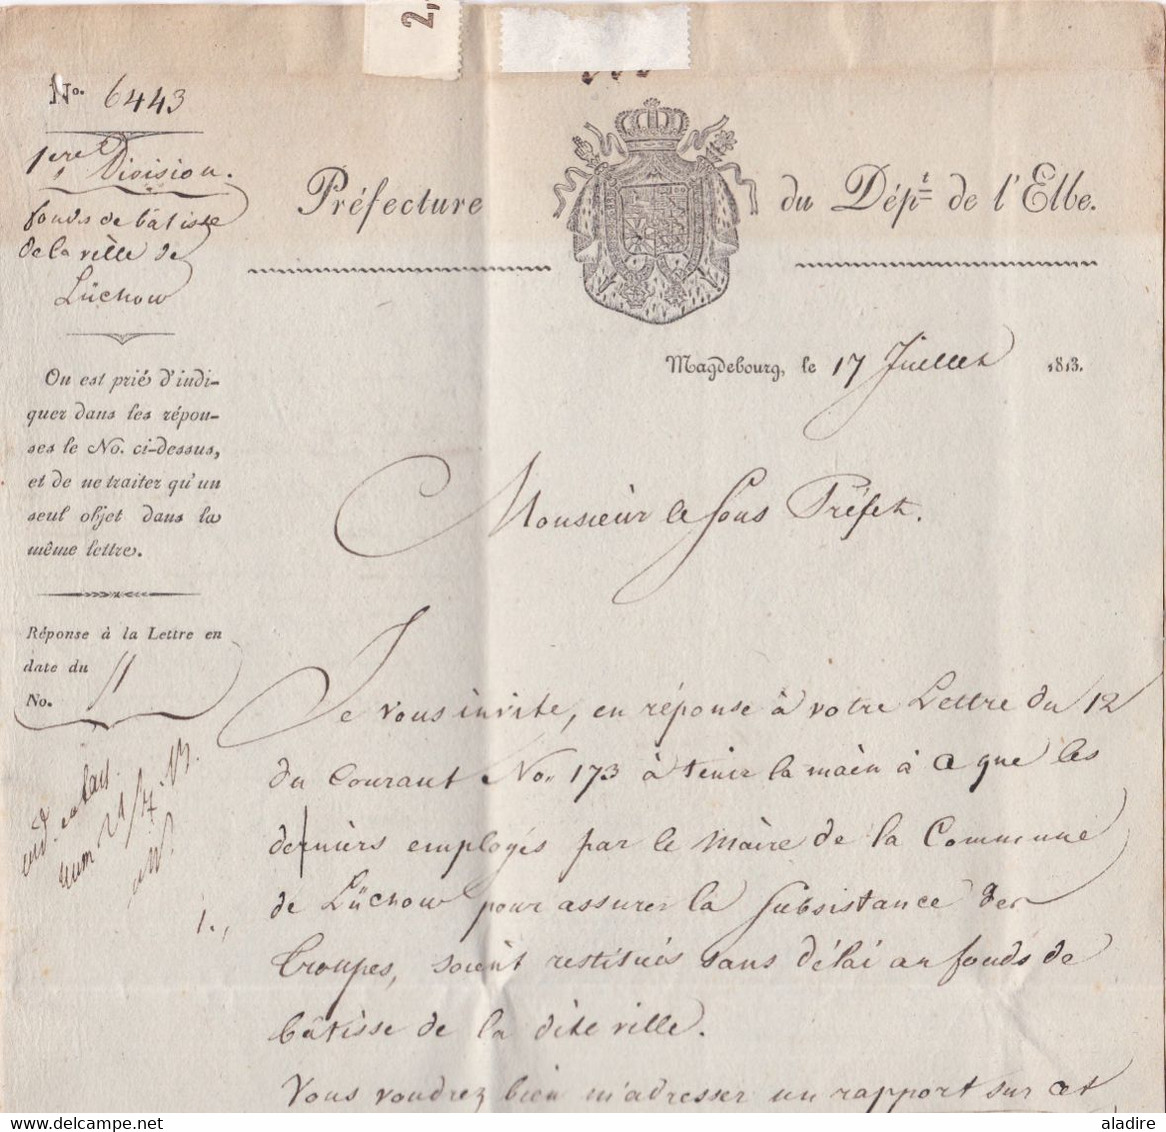 2,
No. 6443
1ere Division.
fonds de bâtisse
de la ville de
Lüchow
Préfecture du Dépt de l'Elbe.
Magdebourg, le 17 Juillet 1813.
On est prié d'indi-
quer dans les répon-
ses le No. ci-dessus,
et de ne traiter qu'un
seul objet dans la
même lettre.
Réponse à la Lettre en
date du
No.
Monsieur le Sous Préfet.
Je vous invite, en réponse à votre Lettre du 12
du Courant No. 173 à tenir la main à ce que les
derniers employés par le Maire de la Commune
1., de Lüchow pour assurer la Subsistance des
Troupes, soient restitués sans délai au fonds de
bâtisse de la dite ville.
Vous voudrez bien m'adresser un rapport sur cet
aladire